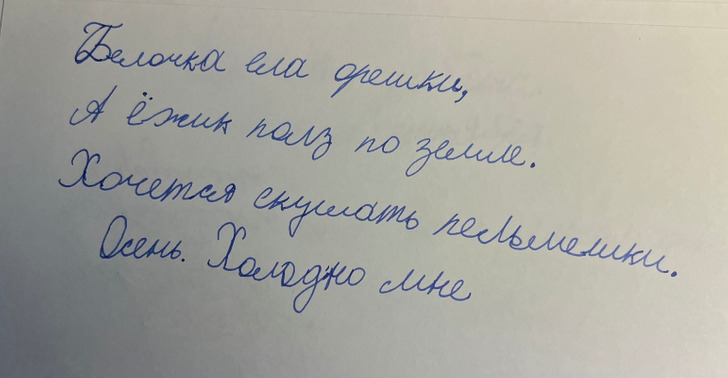 Белочка ела орешки,
А ёжик полз по земле.
Хочется скушать пельмешки.
Осень. Холодно мне